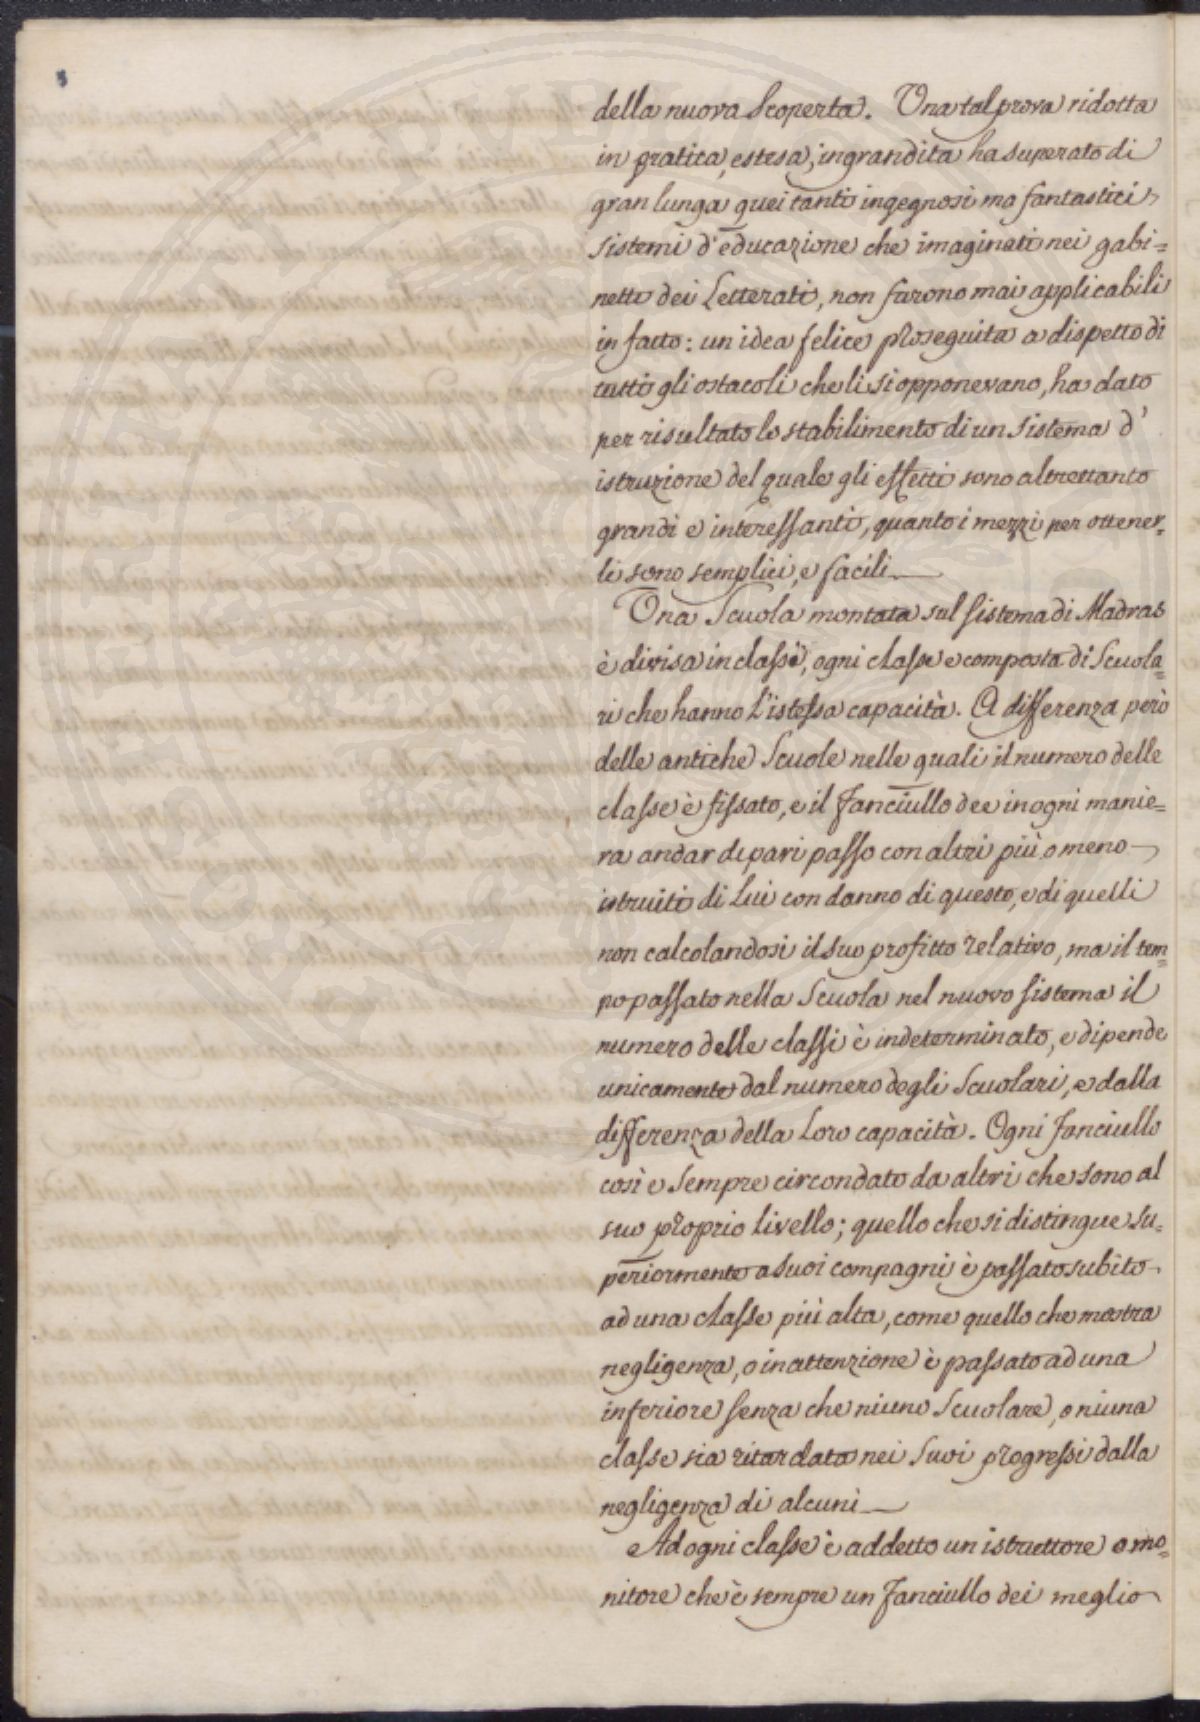 della nuova Scoperta. Una tal prova ridotta
in pratica, estesa, ingrandita ha superato di
gran lunga quei tanti ingegnosi ma fantastici
sistemi d'educazione che imaginati nei gabi=
netti dei Letterati, non furono mai applicabili
in fatto: un idea felice proseguita a dispetto di
tutti gli ostacoli che li si opponevano, ha dato
per risultato lo stabilimento di un Sistema d'
istruzione del quale gli effetti sono altrettanto
grandi e interessanti, quanto i mezzi per ottener=
li sono semplici, e facili
Una Scuola montata sul sistema di Madras
è divisa in classi, ogni classe e composta di Scuola=
ri che hanno l'istessa capacità. A differenza però
delle antiche Scuole nelle quali il numero delle
classe è fissato, e il Fanciullo dee in ogni manie=
ra andar di pari passo con altri più o meno
istruiti di Lui con danno di questo, e di quelli
non calcolandosi il suo profitto relativo, ma il tem=
po passato nella Scuola nel nuovo sistema il
numero delle classi è indeterminato, e dipende
unicamente dal numero degli Scuolari, e dalla
differenza della Loro capacità. Ogni Fanciullo
così e Sempre circondato da altri che sono al
suo proprio livello; quello che si distingue Su=
periormente a Suoi compagni è passato subito
ad una classe più alta, come quello che mostra
negligenza, o inattenzione è passato ad una
inferiore senza che niuno Scuolare, o niuna
classe sia ritardata nei Suoi progressi dalla
negligenza di alcuni
Ad ogni classe è addetto un istruttore o mo=
nitore che è sempre un Fanciullo dei meglio